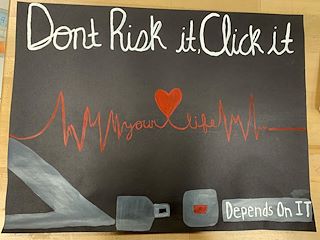 Dont Risk it, Click it
your life
Depends On IT